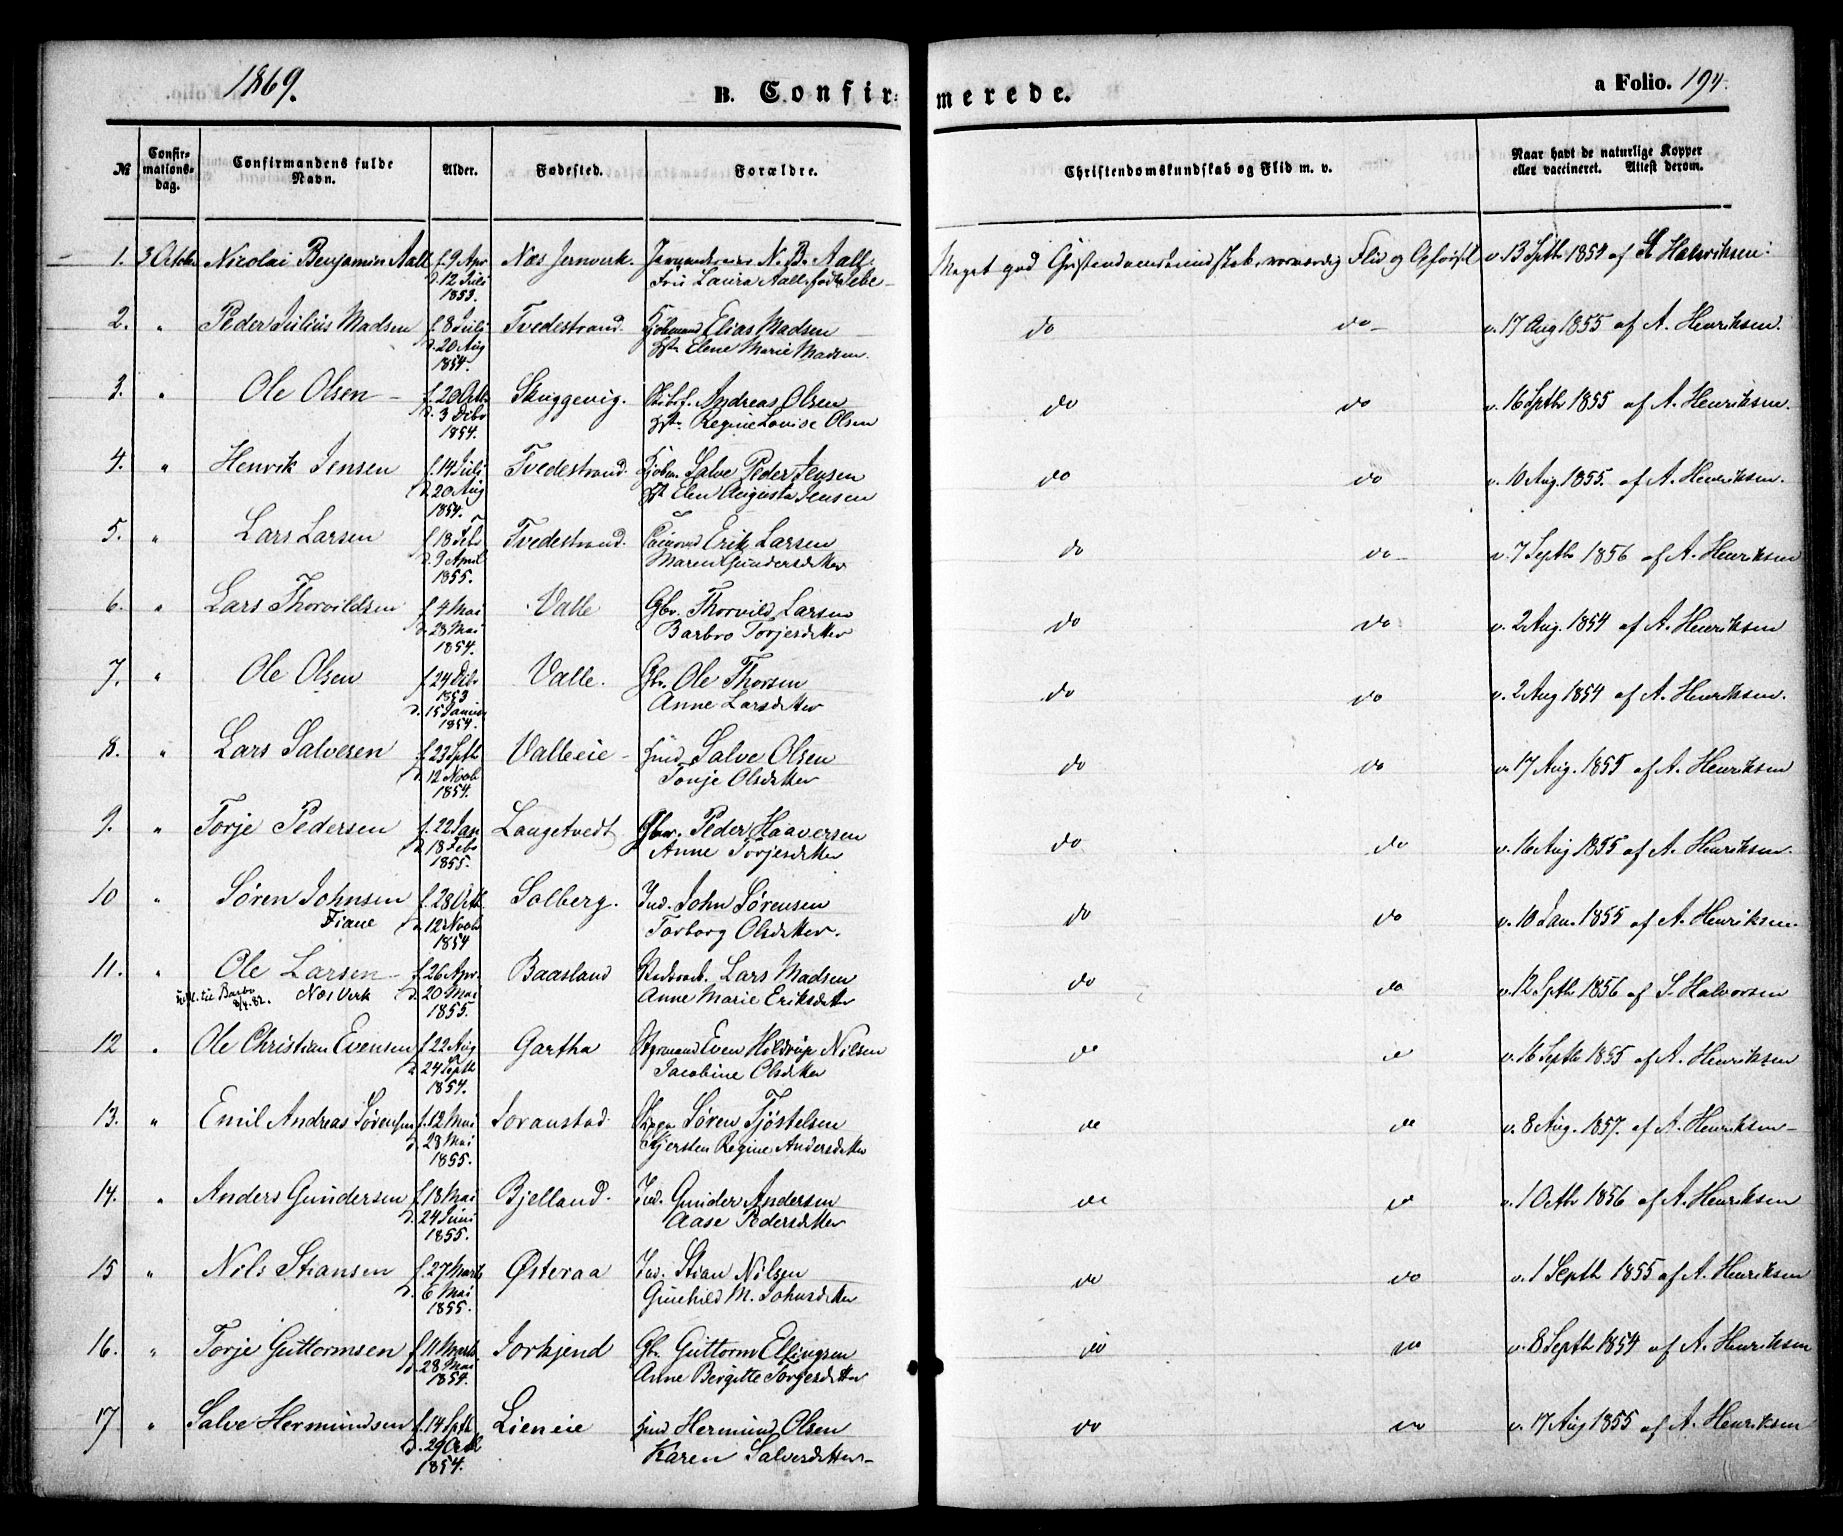 1869.
B. Confirmerede.
a Folio. 194.
№
Confirmationsdag.
Confirmandens fulde Navn.
Alder.
Fødested.
Forældre.
Christendomskundskab og Flid m. v.
Naar havt de naturlige Kopper eller vaccineret. Attest derom.
1. 3 Octobr Nicolai Benjamin Aall f. 9 Apr Næs Jernverk. N. B. Aall Meget god Cristendomskundskab, Flid og v. 13 Septbr 1854 af Halvorsen
d. 12 Juli Laura Aall født
1853.
2. " Peder Julius Madsen f. 8 Juli Tvedestrand. Kjøbmand Elias Madsen do do v. 17 Aug 1855 af A. Henriksen.
d. 20 Aug Hst Elene Marie Madsen.
1854.
3. " Ole Olsen f. 20 Octb Skuggevig. Skibsf. Andreas Olsen do do v. 16 Sptbr 1855 af A. Henriksen.
d. 3 Dcbr Hst. Regine Lovise Olsen
1854.
4. " Henrik Jensen f. 14 Juli Tvedestrand. Kjøbm. Salve Peder Jensen do do v. 10 Aug. 1855. af A. Henriksen.
d. 20 Aug Hst Elen Augusta Jensen
1854.
5. " Lars Larsen f. 18 Febr Tvedestrand. Erik Larsen do do v. 7 Septbr 1856 af A. Henriksen
d. 9 April Maren Gundersdatter
1855.
6. " Lars Thorvildsen f. 4 Mai Valle Gbr. Thorvild Larsen do do v. 2 Aug. 1854 af A. Henriksen
d. 28 Mai Barbro Torjesdatter
1854.
7. " Ole Olsen f. 24 Dcbr Valle. Gbr. Ole Thorsen do do v. 2 Aug 1854 af A. Henriksen.
1853 Anne Larsdatter
d. 15 Januar
1854.
8. " Lars Salvesen f. 23 Sptb Valleeie Hmd. Salve Olsen do do v. 17 Aug. 1855 af A. Henriksen
d. 12 Novb Tonje Olsdatter
1854.
9. " Torje Pedersen f. 22 Jan Langetvedt Gbr. Peder Haaversen do do v. 16 Aug 1855 af A. Henriksen.
d. 18 Febr Anne Torjesdatter
1855.
10 " Søren Johnsen f. 28 Octb. Solberg. Ind. John Sørensen do do v. 10 Jan. 1855 af A. Henriksen.
Fiane d. 12 Novb Torborg Olsdatter.
1854
11. " Ole Larsen f. 26 Apr. Baasland Lars Madsen do do v. 12 Sptbr 1856 af S. Halvorsen
til Barbo 8/4.82. Næs Verk d. 20 Mai Anne Marie Eriksdatter
1855.
12 " Ole Christian Evensen f. 22 Aug Gartha Styrmand Even Nilsen do do v. 16 Septbr 1855 af A. Henriksen
d. 24 Septb Jacobine Olsdatter
1854.
13. " Emil Andreas Sørensen f. 12 Mai Søren Tjøstelsen do do v. 8 Aug. 1857. af A. Henriksen
d. 28 Mai Kjersten Regine Andersdatter
1855.
14. " Anders Gundersen f. 18 Mai Bjelland. Ind. Gunder Andersen do do v. 1 Octbr 1856 af A. Henriksen
d. 24 Juni Aase Pedersdatter
1855.
15 " Nils Stiansen f. 27 Marts Østeraa Ind. Stian Nilsen do do v. 1 Septbr 1855 af A. Henriksen
d. 6 Mai Gunhild M. Johnsdatter
1855.
16. " Torje Guttormsen f. 11 Marts Gbr. Guttorm Ellingsen do do v. 8 Septbr 1854 af A. Henriksen
d. 28 Mai Anne Birgitte Torjersdatter
1854.
17 " Salve Hermundsen f. 14 Sptb Lieneie Hmd Hermund Olsen do do v. 17 Aug 1855 af A. Henriksen
d. 29 Octb Karen Salvesdatter
1854.